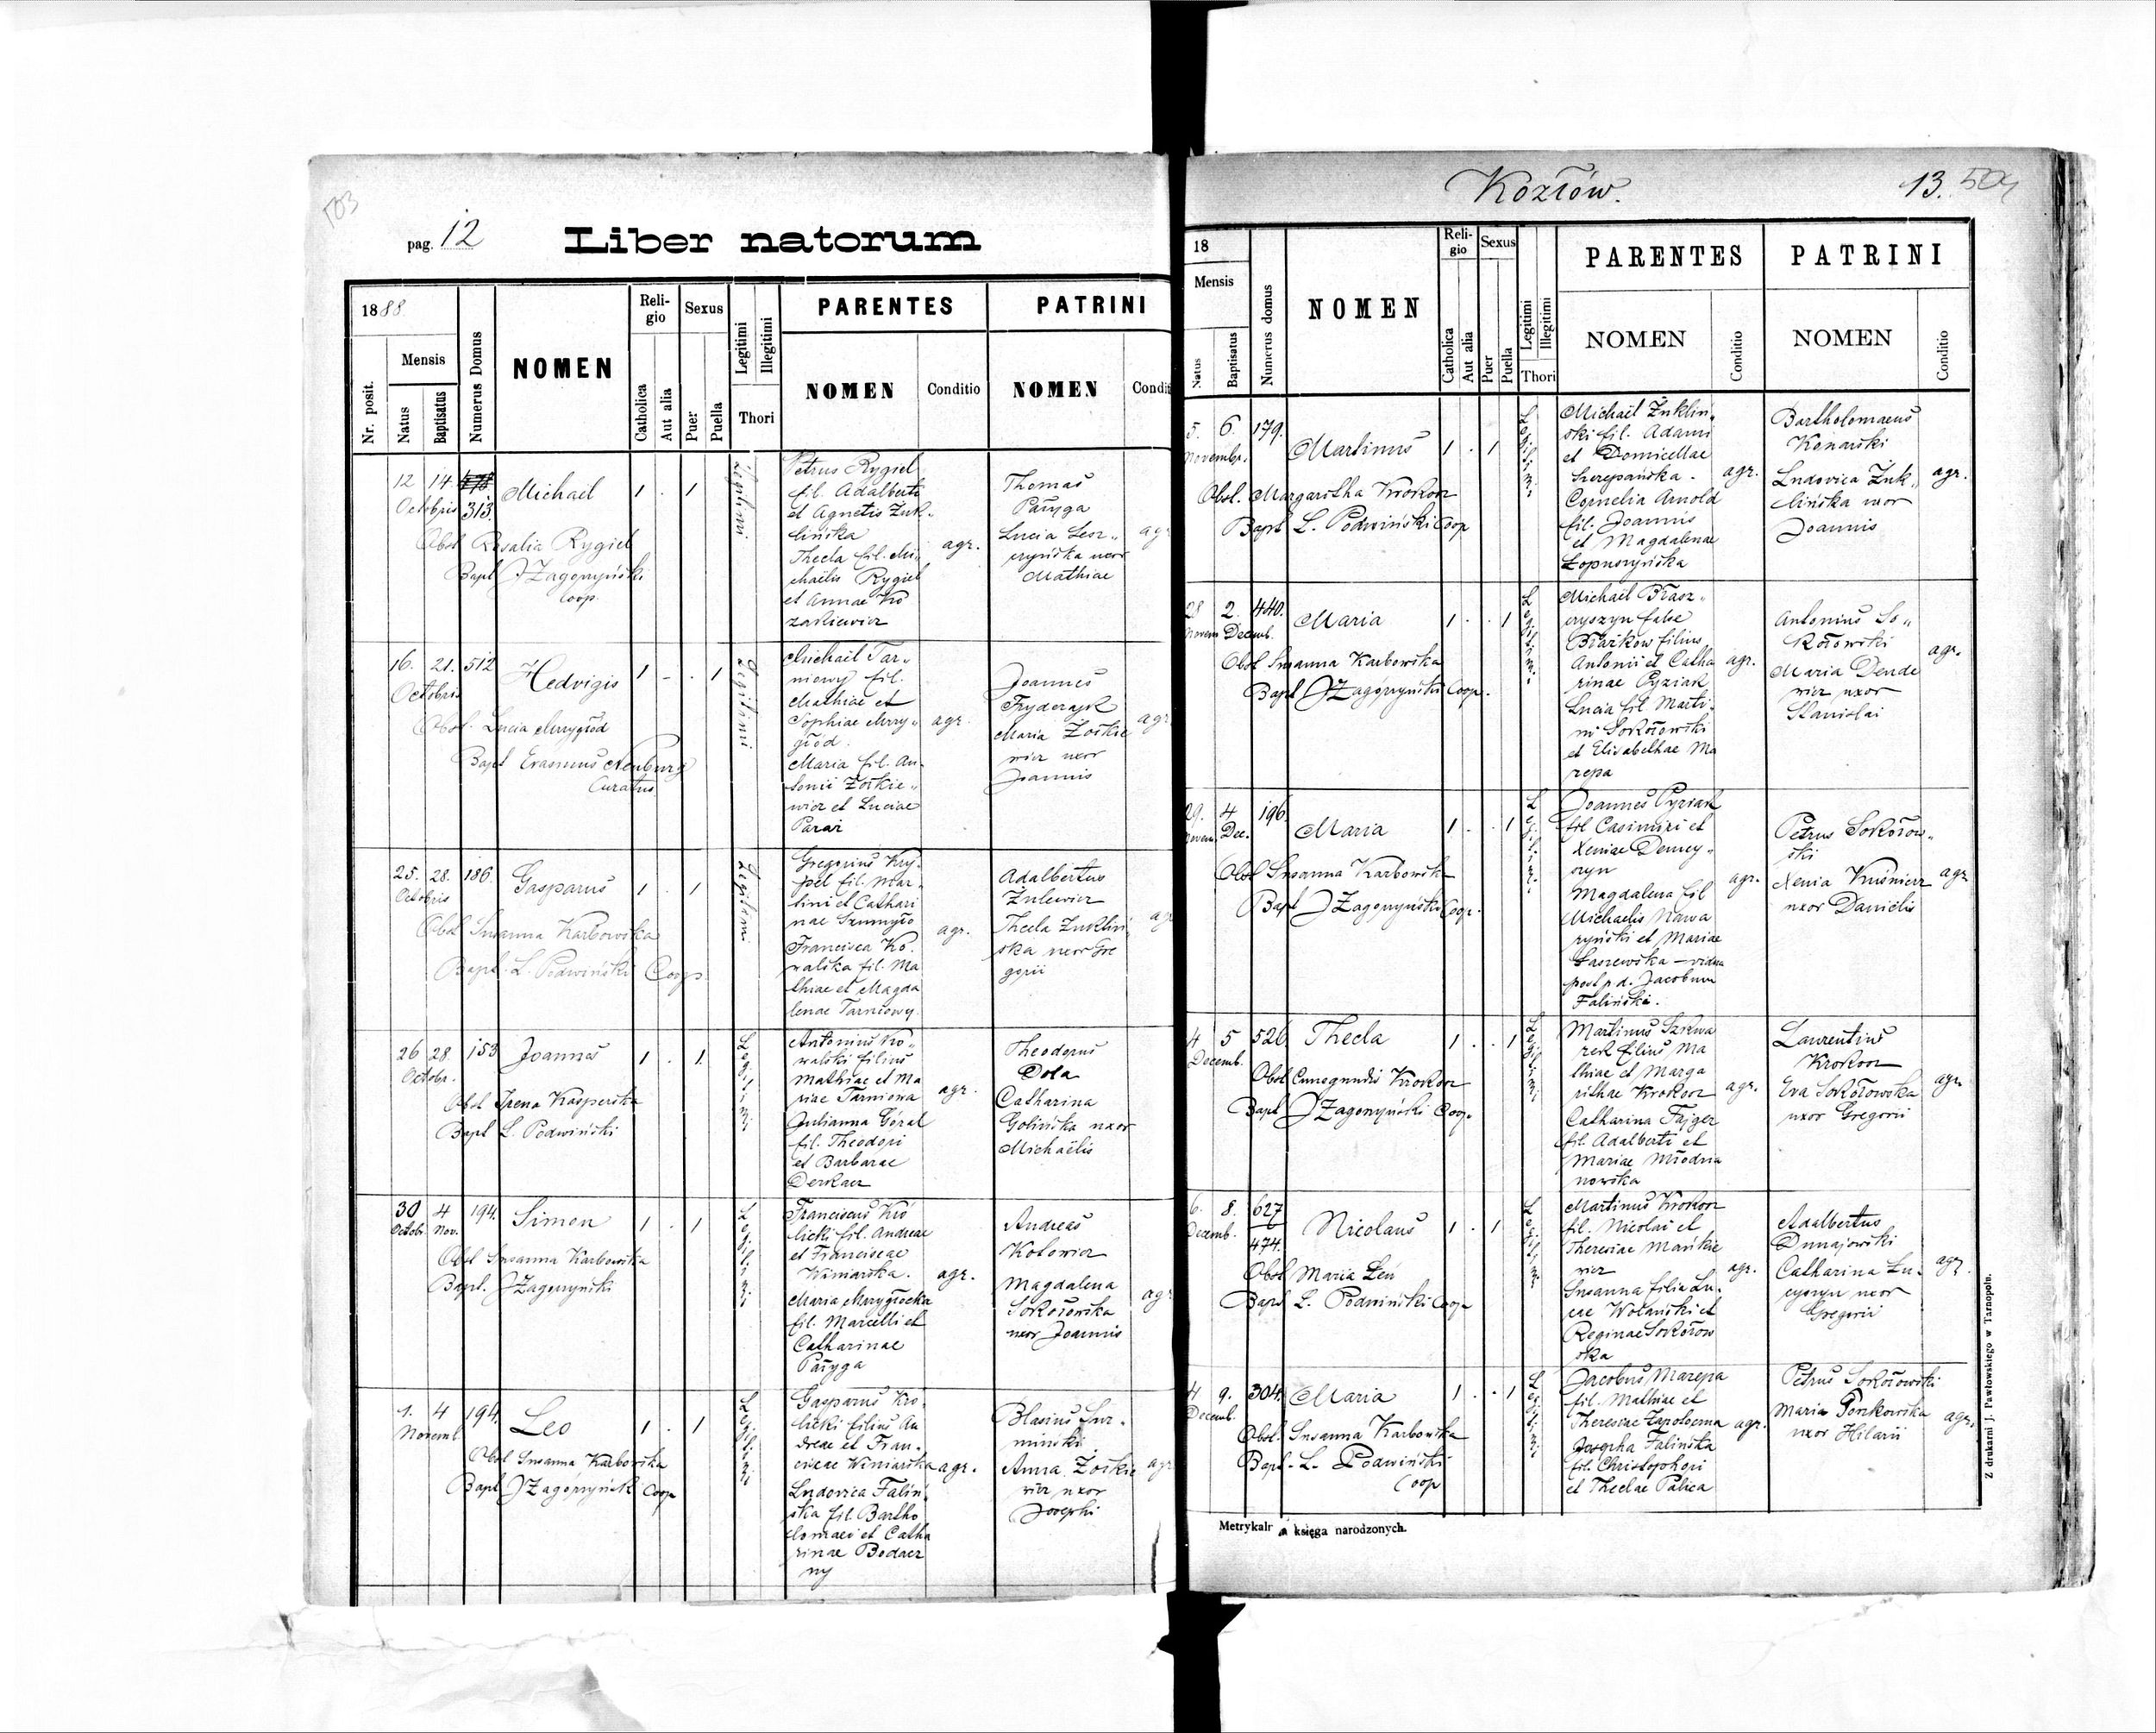 503
pag. 12
Liber natorum
1888
Nr. posit.
Mensis
Natus
Baptisatus
Numerus Domus
NOMEN
Reli-
gio
Catholica
Aut alia
Sexus
Puer
Puella
Legitimi
Illegitimi
Thori
PARENTES
NOMEN
Conditio
PATRINI
NOMEN
Condit
12 14. 313. Michaël 1 . 1
Octobris
Obst Rosalia Rygiel
Bapt J Zagórzyński
Coop.
Legitimi
Petrus Rygiel
fil. Adalberti
et Agnetis Żuk„
lińska
Thecla fil. Mi„
chaëlis Rygiel
et Annae Ko
zakiewicz
agr.
Thomas
Paryga
Lucia Lesz„
czyńska uxor
Mathiae
agr
16. 21. 512 Hedvigis 1 - . 1
Octobris
Obst. Lucia Mrzygłód
Bapt Erasmus Neuburg
Curatus
Legitimi
Michaël Tar„
niowy fil.
Mathiae et
Sophiae Mrzy„
głód.
Maria fil. An„
tonii Żołkie„
wicz et Luciae
Paraż
agr.
Joannes
Fryderayk
Maria Żołkie
wicz uxor
Joannis
agr.
25. 28. 186. Gasparus 1 . 1
Octobris
Obst Susanna Karbowska
Bapt. L. Podwiński Coop.
Legitimi
Gregorius Kry„
pel fil. Mar„
tini et Cathari
nae Szumgło
Francisca Ko„
walska fil. Ma
thiae et Magda
lenae Tarniowy
agr.
Adalbertus
Żulewicz
Thecla Żukliń„
ska uxor Gre
gorii
ag
26 28. 153 Joannes 1 . 1.
Octobr.
Obst Irena Kasperska
Bapt L. Podwiński
Legitimi
Antonius Ko„
walski filius
Mathiae et Ma
riae Tarniowa
Julianna Góral
fil. Theodori
et Barbarae
Derkacz
agr.
Theodorus
Dola
Catharina
Golińska uxor
Michaëlis
30 4 194. Simon 1 . 1
Octobr. Nov.
Obst Susanna Karbowska
Bapt. J Zagórzyński
Legitimi
Franciscus Kró
licki fil. Andreae
et Franciscae
Winiarska.
Maria Mrzygłocka
fil. Marcelli et
Catharinae
Paryga
agr.
Andreas
Kotowicz
Magdalena
Sokołowska
uxor Joannis
agr
1. 4 194. Leo 1 . 1
Novemb.
Obst Susanna Karbowska
Bapt J Zagórzyński Coop
Legitimi
Gasparus Kró
licki filius An
dreae et Fran„
ciscae Winiarska
Ludovica Faliń„
ska fil. Bartho
lomaei et Catha
rinae Bodacz
ny
agr.
Blasius Sur„
miński
Anna Żołkie
wicz uxor
Josephi
agr
Kozłów.
13. 504
18
Mensis
Natus
Baptisatus
Numerus domus
NOMEN
Reli-
gio
Catholica
Aut alia
Sexus
Puer
Puella
Legitimi
Illegitimi
Thori
PARENTES
NOMEN
Conditio
PATRINI
NOMEN
Conditio
5. 6. 179. Martinus 1 . 1
Novembr.
Obst. Margaritha Krokosz
Bapt L. Podwiński Coop
Legitimi
Michaël Żuklin„
ski fil. Adami
et Domicellae
Szczepańska.
Cornelia Arnold
fil. Joannis
et Magdalenae
Łopuszyńska
agr.
Bartholomaeus
Konarski
Ludovica Żuk„
lińska uxor
Joannis
agr.
28 2. 440. Maria 1 . . 1
Novem Decemb.
Obst Susanna Karbowska
Bapt J Zagórzyński Coop.
Legitimi
Michaël Błasz„
czyszyn false
Błażków filius
Antonii et Catha
rinae Pyziak
Lucia fil Marti„
ni Sokołowski
et Elisabethae Ma
rzepa
agr.
Antonius So„
kołowski
Maria Dende
wicz uxor
Stanislai
agr.
29. 4 196. Maria 1 . . 1
Novem. Dec.
Obst Susanna Karbowska
Bapt J Zagórzyński Coop.
Legitimi
Joannes Pyziak
fil Casimiri et
Xeniae Demey„
czyn
Magdalena fil
Michaelis Nawa
ryński et Mariae
Łaszewska – vidua
post p d. Jacobum
Faliński.
agr.
Petrus Sokołow„
ski
Xenia Kuśnierz
uxor Danielis
agr.
4 5 526. Thecla 1 . . 1
Decemb.
Obst Cunegundis Krokosz
Bapt J Zagórzyński Coop.
Legitimi
Martinus Szkwa
rek filius Ma
thiae et Marga
rithae Krokosz
Catharina Fajger
fil. Adalberti et
Mariae Młodna
nowska
agr.
Laurentius
Krokosz
Eva Sokołowska
uxor Gregorii
agr.
6. 8. 627 Nicolaus 1 . 1
Decemb. 474.
Obst Maria Leń
Bapt L. Podwiński Coop
Legitimi
Martinus Krokosz
fil. Nicolai et
Theresiae Mańkie
wicz
Susanna filia Lu„
cae Wolański et
Reginae Sokołow
ska
agr.
Adalbertus
Dunajowski
Catharina Łu„
cyszyn uxor
Gregorii
agr.
4 9. 304. Maria 1 . . 1
Decemb.
Obst. Susanna Karbowska
Bapt. L. Podwiński
Coop
Legitimi
Jacobus Marzepa
fil. Mathiae et
Theresiae Zapotocma
Josepha Falińska
fil. Christophori
et Theclae Palica
agr.
Petrus Sokołowski
Maria Ponkowska
uxor Hilarii
agr.
Metrykalna księga narodzonych.
Z drukarni J. Pawłowskiego w Tarnopolu.